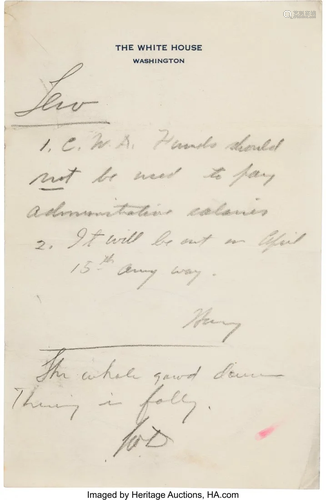 THE WHITE HOUSE
WASHINGTON
Lew
1. C. W. A. Funds should
not be used to pay
administrative salaries
2. It will be out on April
15th any way.
Harry
The whole
Thing is folly.
Imaged by Heritage Auctions, HA.com